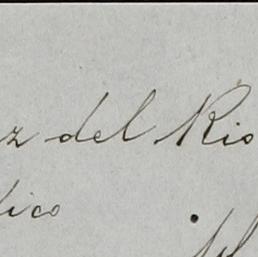 z del Rio
dico